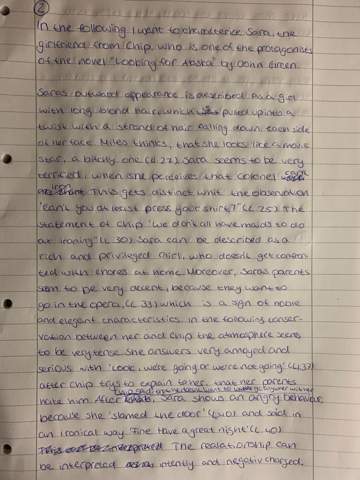 2
In the following I want to characterice Sara, the
girlfriend from Chip, who is one of the protagonites
of the novel "Looking for Alaska" by John Green.
Saras outward appearance is described as a girl
with long blond haire which is pulled up into a
twist with a strand of hair falling down each side
of her face. Miles thinks, that she looks like a movie
star, a bitchy one (l. 22). Sara seems to be very
terrified, when she perceives that Colonel
iron This gets distinct whit the observation
"Can't you at least press your shirt?" (l. 25). The
statement of Chip "We don't all have maids to do
at ironing" (l. 30). Sara can be described as a
rich and privileged girl, who doesn't get
ted with chores at home. Moreover, Saras parents
seem to be very decent, because they want to
go in the opera, (l. 33) which is a sign of noble
and elegant characteristics. In the following conser-
vation between her and Chip the atmosphere seems
to be very tense. She answers very annoyed and
serious with "Look, were going or were not going" (l. 37)
after Chip trys to explain to her, that her parents
hate him. Sara shows an angry behaviour
because she "slamed the door" (l. 40) and said in
an ironical way "Fine. Have a great night" (l. 40)
The realationship can
be interpreted intently and negativ charged.